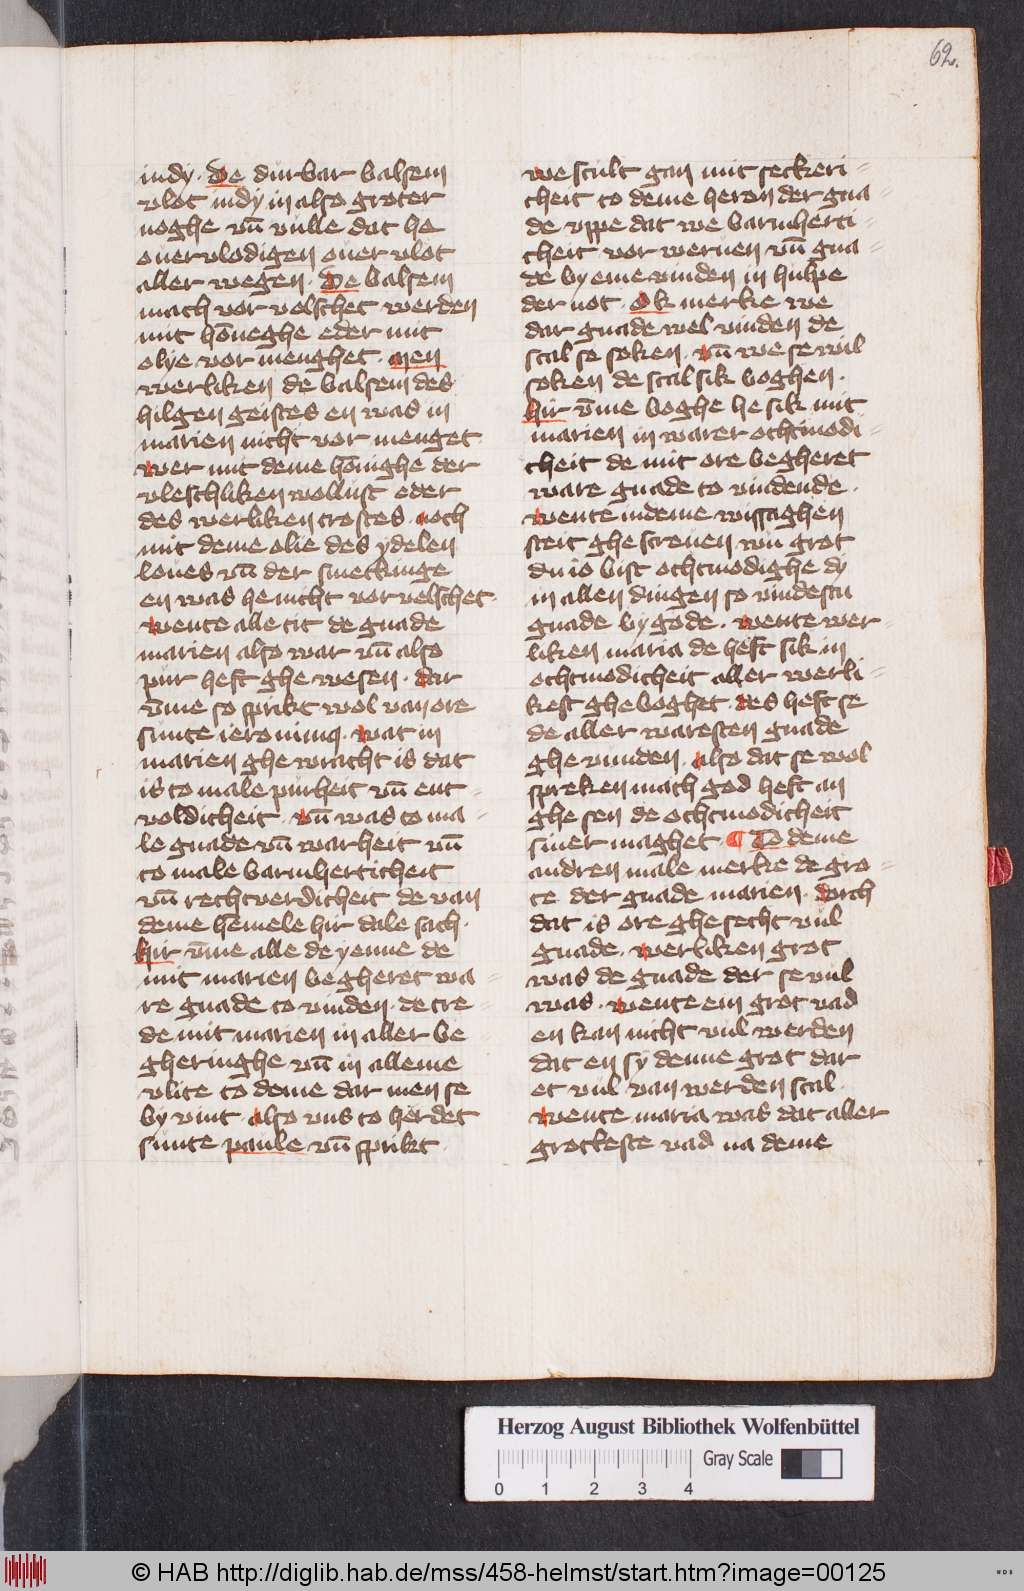 62.
indy. De durbar balsem
vlot indy in also groter
noghe vn̄ vulle dat he
ouervlodigen ouer vlot
aller wegen. De balsem
mach vor velschet werden
mit hōneghe eder mit
olye vor menghet. Men
werliken de balsem des
hilgen geistes en was in
marien nicht vor menget
Wer mit deme hōnighe der
vleschliken wollust eder
des werliken trostes. Noch
mit deme olie des ydelen
loues vn̄ der smeckinge
en was he nicht vor velschet.
Wente alle tit de gnade
marien also war vn̄ also
pur heft ghe wesen. Dar
v̄me so sprikt wol van ore
sunte ieronimꝯ. Wat in
marien ghe wracht is dat
is to male purheit vn̄ ent=
voldicheit. Vn̄ was to ma=
le gnade vn̄ warheit vn̄
to male barmherticheit
vn̄ rechtverdicheit de van
deme hemele hir dale sach.
Hir v̄me alle de yenne de
mit marien begheret wa=
re gnade to vinden. de tre=
de mit marien in aller be
gheringhe vn̄ in alleme
vlite to deme dar men se
by vint. Also vns to herdet
sunte paule vn̄ sprikt.
We scult gan mit seckeri=
cheit to deme heron der gna=
de vppe dat we barmherti=
cheit vor weruen vn̄ gna=
de by eme vinden in hulpe
der not. Ok merke we
dar gnade wel vinden de
scal se soken. Vn̄ we se wil
soken de scal sik boghen.
Hir v̄me boghe he sik mit
marien in warer othmodi=
cheit de mit ore begheret
ware gnade to vindende.
Wente indeme wissaghen
steit ghe screuen wu grot
du io bist othmodighe dy
in allen dingen so vindestu
gnade by gode. Wente wer=
liken maria de heft sik in
othmodicheit aller werli=
kest ghe boghet. des heft se
de aller waresten gnade
ghe vunden. Also dat se wol
spreken mach god heft an
ghe sen de othmodicheit
siner maghet. ¶ To deme
andren male merke de gro=
te der gnade marien. Dorch
dat is ore ghe secht vul
gnade. Werliken grot
was de gnade der se vul
was. Wente ein grot vad
en kan nicht vul werden
dat en sy denne grot dar
et vul van werden scal.
Wente maria was dat aller
grotteste vad na deme
Herzog August Bibliothek Wolfenbüttel
Gray Scale
0 1 2 3 4
© HAB http://diglib.hab.de/mss/458-helmst/start.htm?image=00125